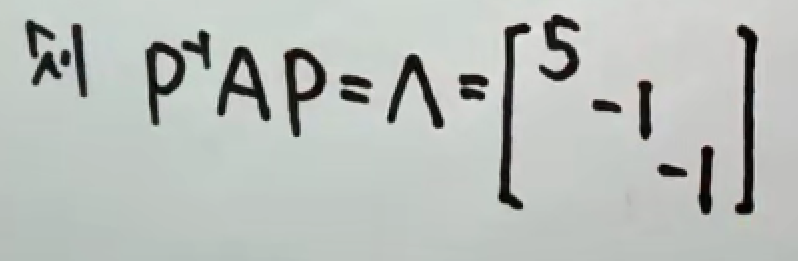 则 P⁻¹AP=Λ=[5
-1
-1]